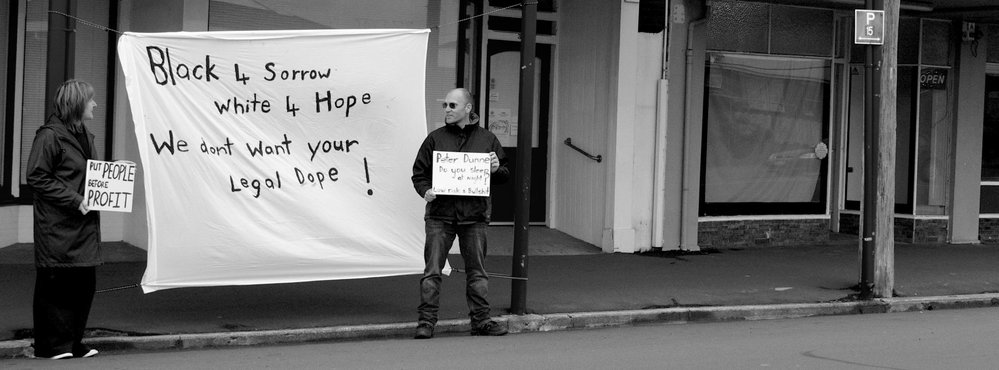 Black 4 Sorrow
white 4 Hope
We dont want your
Legal Dope !
PUT PEOPLE
BEFORE
PROFIT
Peter Dunne
Do you sleep
at night?
Low risk = Bullshit
P
15
OPEN